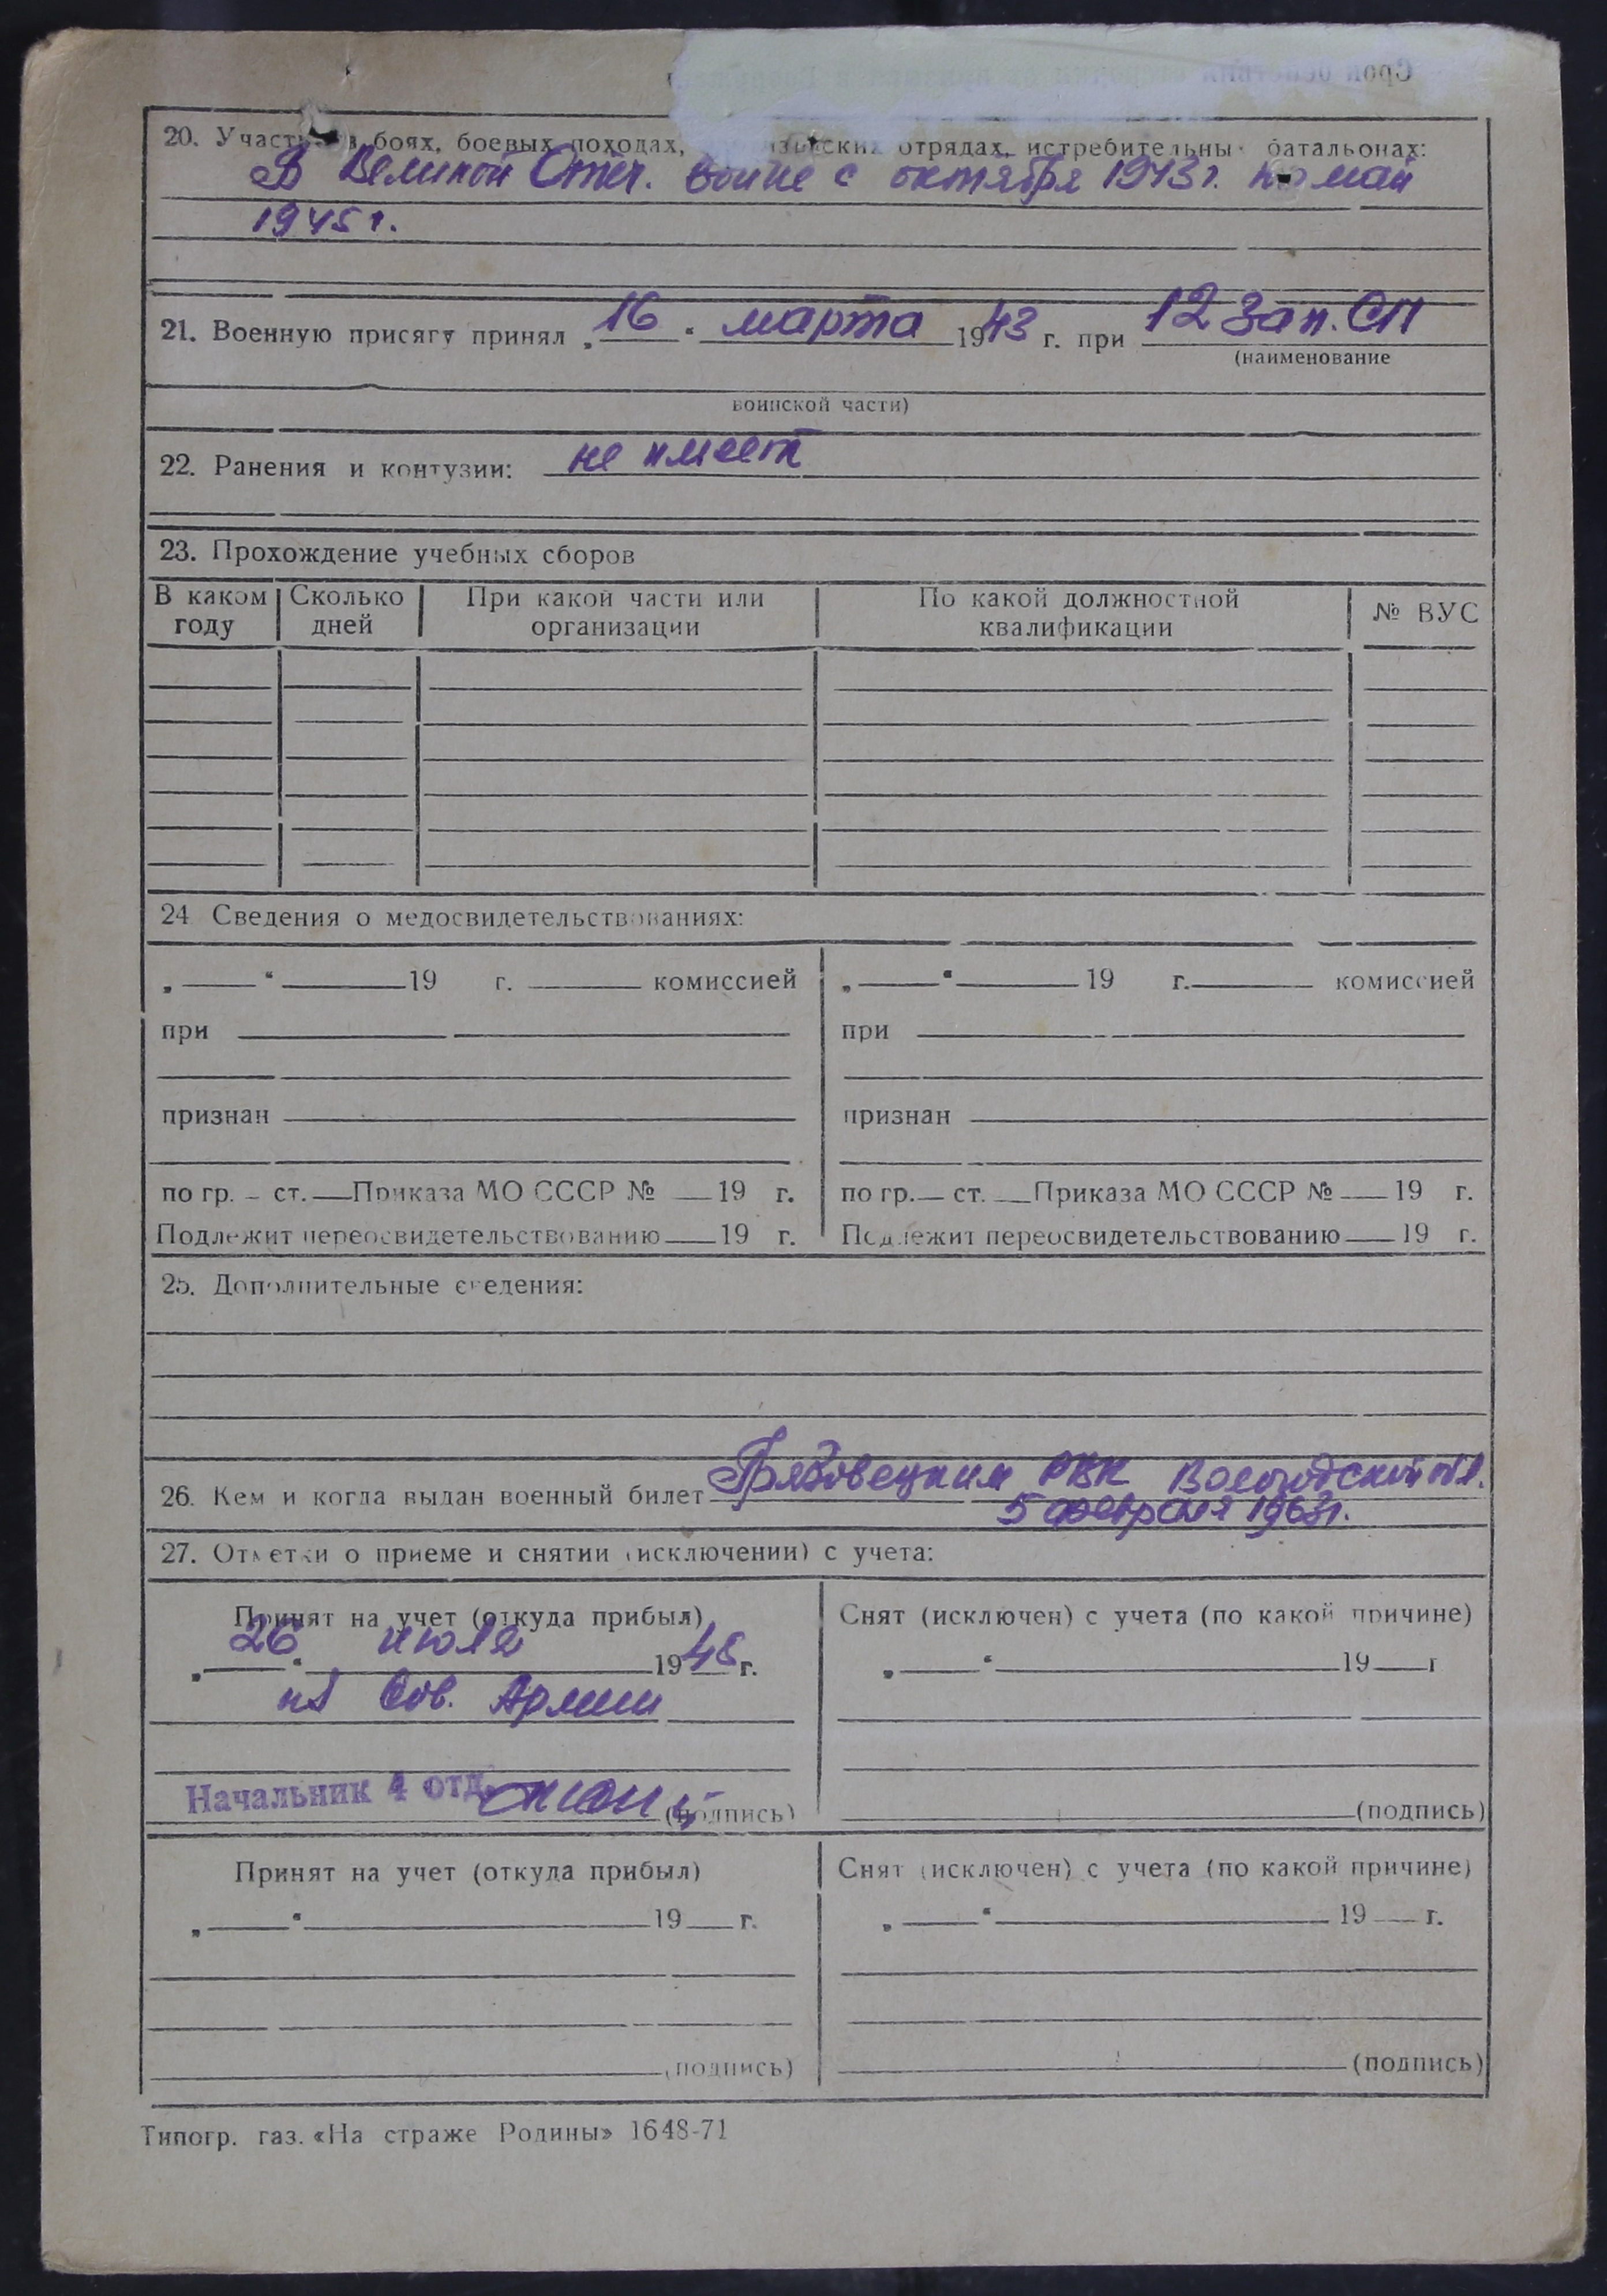 20. Участие в боях, боевых походах, отрядах, истребительных батальонах:
В Великой Отеч. войне с октября 1943 г. по май
1945 г.
21. Военную присягу принял „16“ марта 1943 г. при 12 Зап. СП
(наименование
воинской части)
22. Ранения и контузии: не имеет
23. Прохождение учебных сборов
В каком году Сколько дней При какой части или организации По какой должностной квалификации № ВУС
24 Сведения о медосвидетельствованиях:
„ “ 19 г. комиссией „ “ 19 г. комиссией
при при
признан признан
по гр. – ст. Приказа МО СССР № 19 г. по гр. ст. Приказа МО СССР № 19 г.
Подлежит переосвидетельствованию 19 г. Подлежит переосвидетельствованию 19 г.
25. Дополнительные сведения:
26. Кем и когда выдан военный билет Грязовецким РВК Вологодской обл.
5 февраля 1963 г.
27. Отметки о приеме и снятии (исключении) с учета:
Принят на учет (откуда прибыл) Снят (исключен) с учета (по какой причине)
„26“ июля 1948 г. „ “ 19 г
из Сов. Армии
Начальник 4 отд. (подпись) (подпись)
Принят на учет (откуда прибыл) Снят (исключен) с учета (по какой причине)
„ “ 19 г. „ “ 19 г.
(подпись) (подпись)
Типогр. газ. «На страже Родины» 1648-71